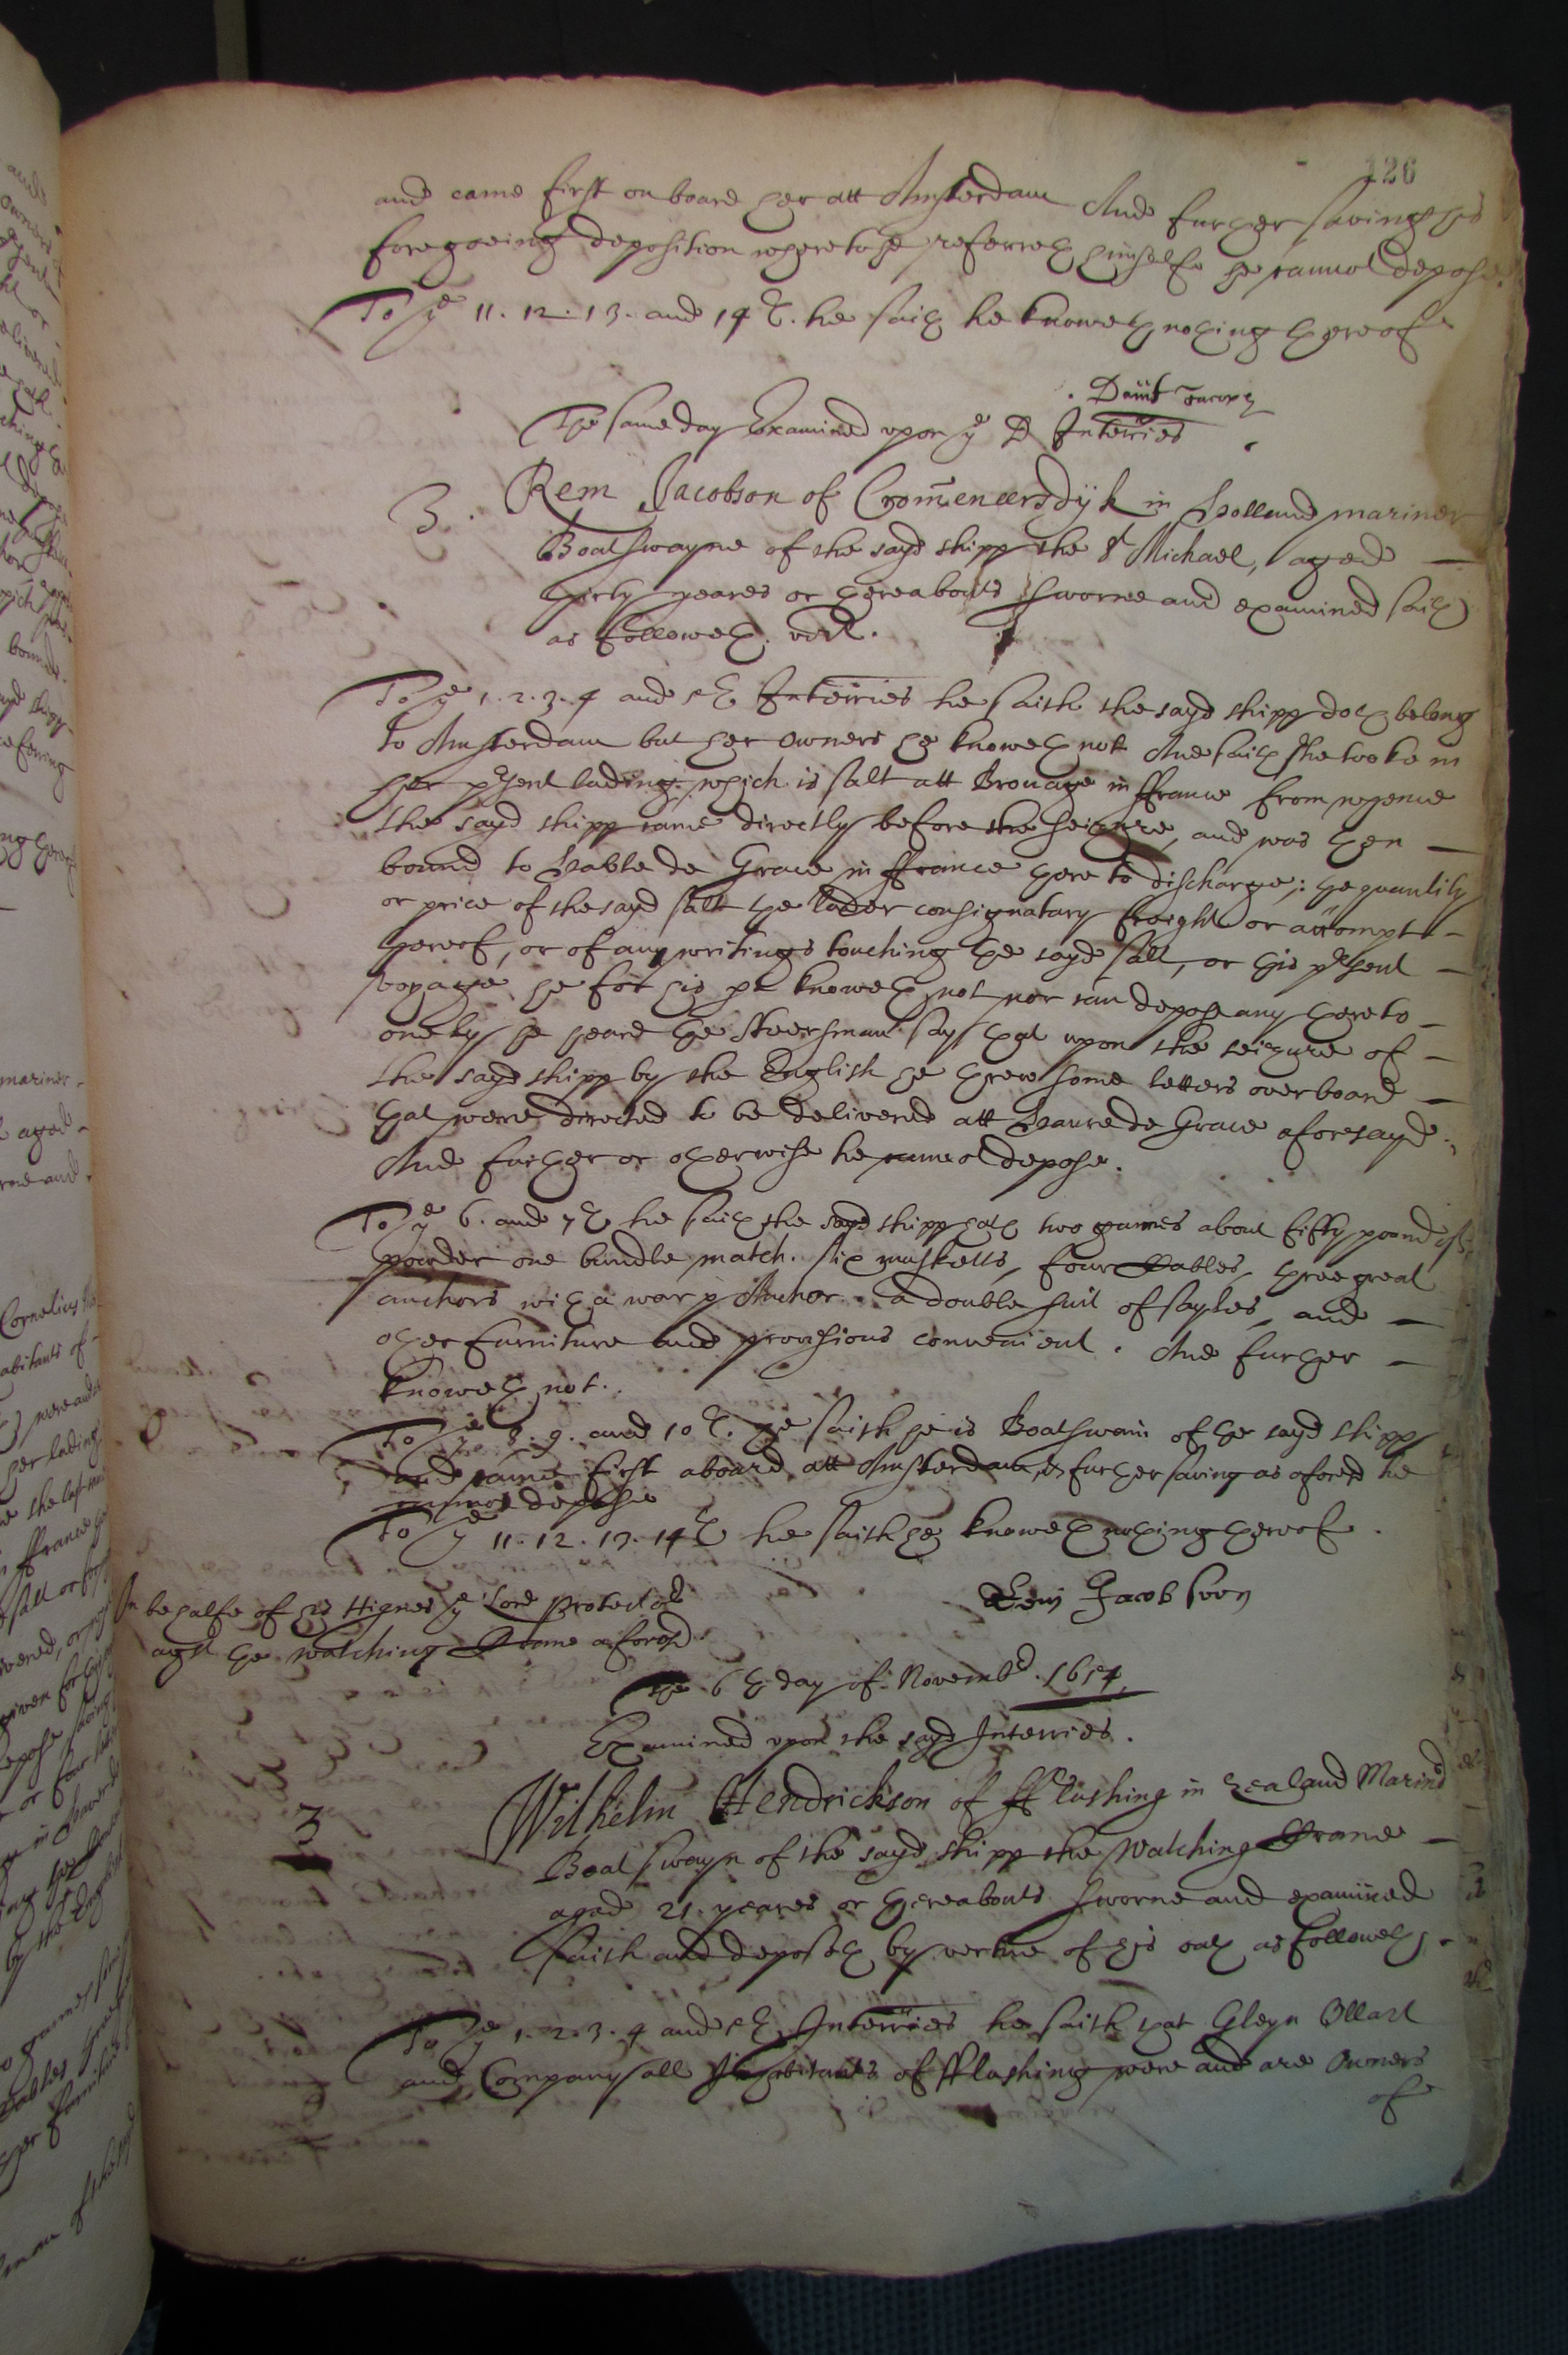 126
and came first on board her att Amsterdam And further saving his
foregoeing deposition whereto he referreth himselfe he cannot depose.
To ye 11. 12. 13. and 14th. he saith he knoweth nothing thereof
The same day Examined upon ye sd Interries
3. Rem Jacobson of Crommeneersdijk in Holland mariner
Boatswayne of the sayd shipp the St Michael, aged
thirty yeares or thereabouts sworne and examined saith
as followeth. vizt.
To ye 1. 2. 3. 4 and 5th Interries he saith the sayd shipp doth belong
to Amsterdam but her owners he knoweth not And saith she tooke in
her pñsent lading which is salt att Brouage in ffrance from whence
the sayd shipp came directly before the seizure, and was then
bound to Hable de Grace in ffrance there to discharge; the quantity
or price of the sayd salt the lader consignatary freight or accompt
thereof, or of any writings touching the sayd salt, or his pñsent
voyage he for his pt knoweth not nor can depose any thereto
onely he heard the Steersman say that upon the seizure of
the sayd shipp by the English he threw some letters overboard
that were directed to be delivered att Havre de Grace aforesayd.
And further or otherwise he cannot depose.
To ye 6. and 7th he saith the sayd shipp hath two gunnes about fifty pound of
powder one bundle match. six musketts, four Cables, three great
anchors with a warp Anchor. a double suit of sayles, and
other furniture and provisions convenient. And further
knoweth not.
To ye 8. 9. and 10th. he saith he is Boatswain of the sayd shipp
and came first aboard att Amsterdam, & further saving as aforesd he
cannot depose
To ye 11. 12. 13. 14th he saith he knoweth nothing thereof.
Rem Jacobsoon
In behalfe of his Highnes ye Lord Protector
agst the watching Crane aforesd.
The 6th day of Novembr. 1654.
Examined upon the sayd Interries.
3 Wilhelm Hendrickson of fflushing in Zealand Marinr
Boatswayn of the sayd shipp the Watching Crane
aged 21. yeares or thereabouts sworne and examined
saith and deposeth by vertue of his oath as followeth.
To ye 1. 2. 3. 4 and 5th. Interries he saith that Gleyn Ollart
and Company all Inhabitants of fflushing were and are Owners
of